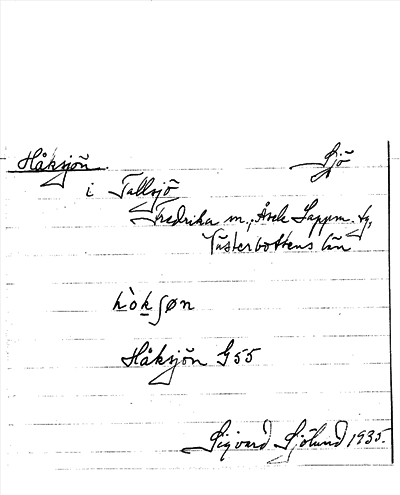 Håksjön. Sjö
i Tallsjö
Fredrika sn., Åsele Lappm. tg,
Västerbottens län
hòkʃøn
Håksjön G55
Sigvard Sjölund 1935.